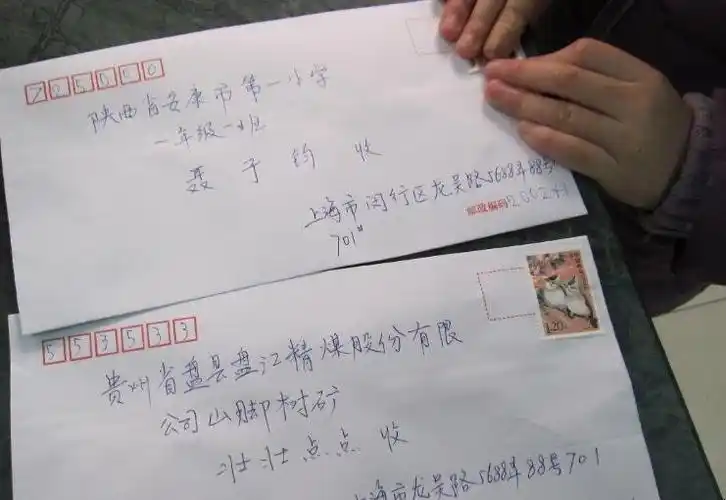 725000
陕西省安康市第一小学
一年级一班
聂子钧 收
上海市闵行区龙吴路5688弄88号
701#
邮政编码200241
1.20元
553533
贵州省盘县盘江精煤股份有限
公司山脚树矿
壮壮点点 收
上海市龙吴路5688弄88号701